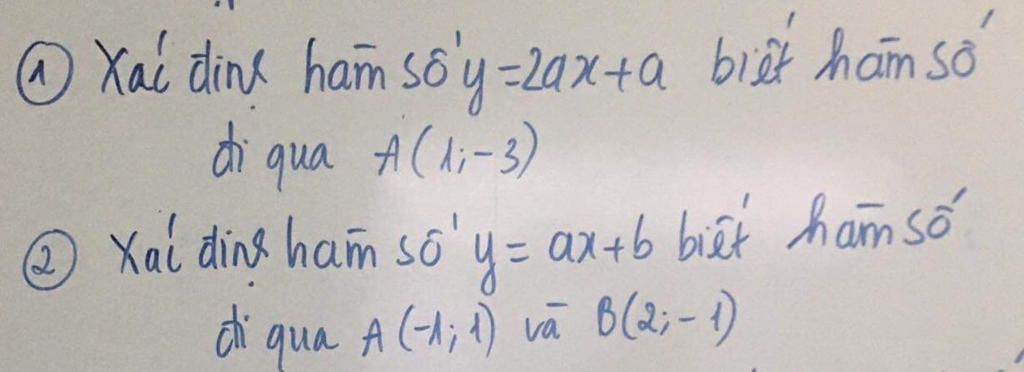 ① Xác định hàm số y=2ax+a biết hàm số
đi qua A(1;-3)
② Xác định hàm số y= ax+b biết hàm số
đi qua A(-1;1) và B(2;-1)